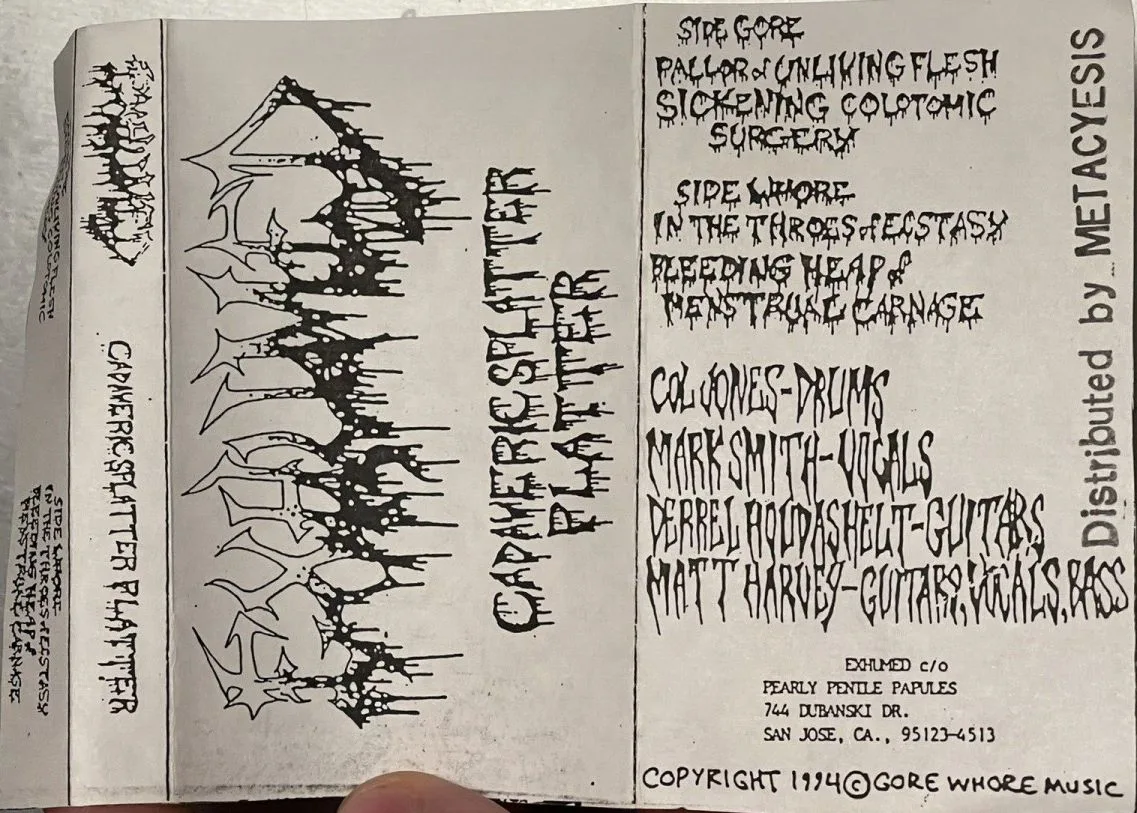 SIDE GORE
PALLOR of UNLIVING FLESH
SICKENING COLOTOMIC
SURGERY
SIDE WHORE
IN THE THROES of ECSTASY
BLEEDING HEAP of
MENSTRUAL CARNAGE
COL JONES-DRUMS
MARK SMITH-VOCALS
DERREL HOUDASHELT-GUITARS
MATT HARVEY-GUITARS, VOCALS, BASS
EXHUMED c/o
PEARLY PENILE PAPULES
744 DUBANSKI DR.
SAN JOSE, CA., 95123-4513
COPYRIGHT 1994 © GORE WHORE MUSIC
Distributed by METACYESIS
CADAVERIC SPLATTER
PLATTER
EXHUMED
CADAVERIC SPLATTER PLATTER
SIDE WHORE
IN THE THROES of ECSTASY
BLEEDING HEAP of
MENSTRUAL CARNAGE